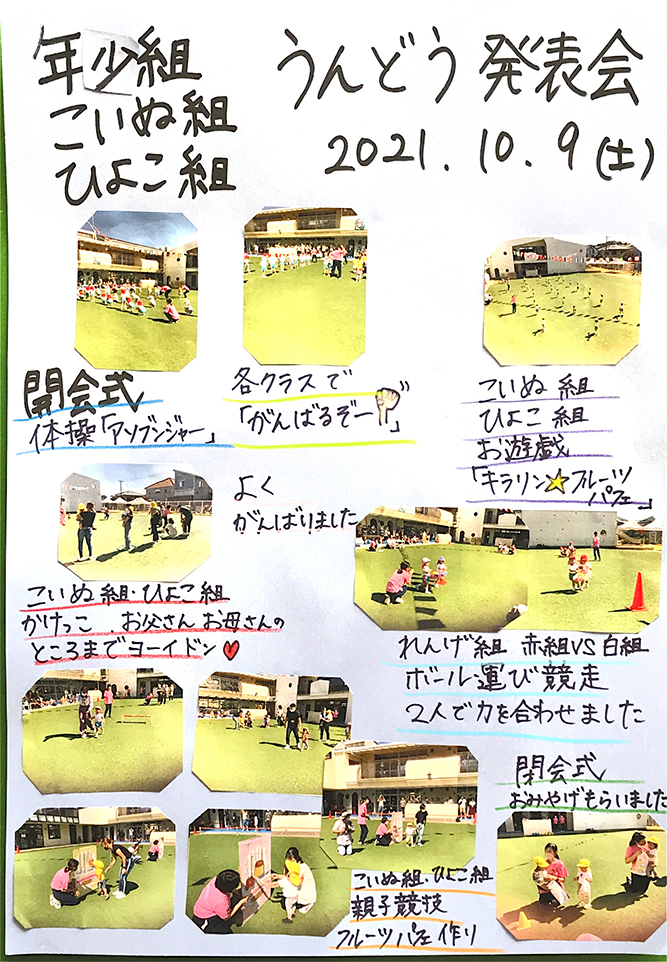 年少組
こいぬ組
ひよこ組
うんどう発表会
2021.10.9(土)
開会式
体操「アソブンジャー」
各クラスで
「がんばるぞー」
こいぬ組
ひよこ組
お遊戯
「キラリン☆フルーツ
パフェ」
よく
がんばりました
こいぬ組・ひよこ組
かけっこ お父さんお母さんの
ところまでヨーイドン♥
れんげ組 赤組VS白組
ボール運び競走
2人で力を合わせました
閉会式
おみやげもらいました
こいぬ組・ひよこ組
親子競技
フルーツパフェ作り